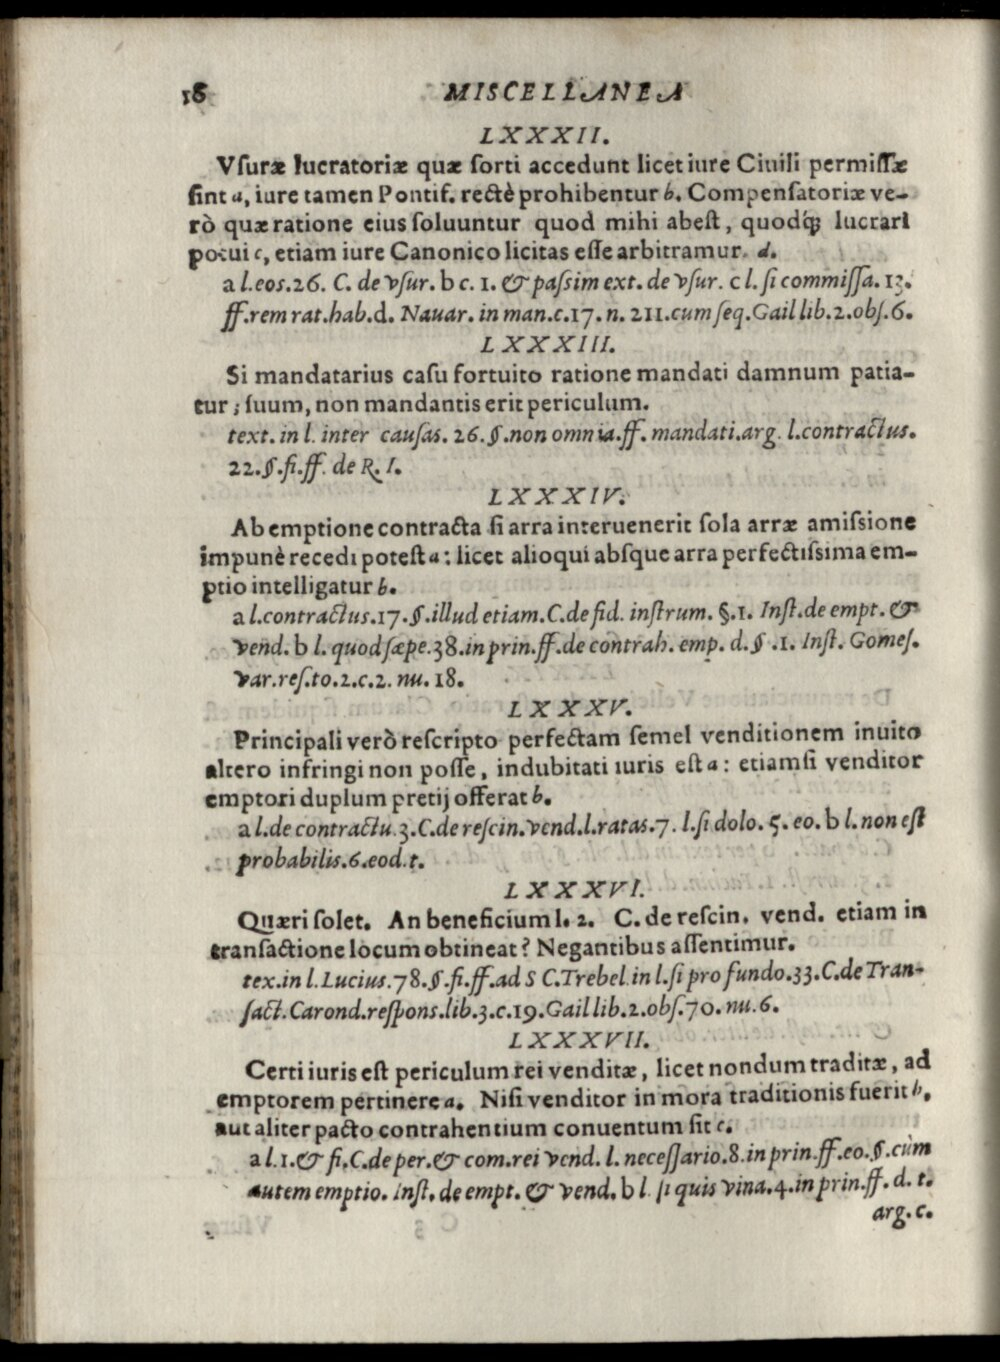 18 MISCELLANEA
LXXXII.
Vſuræ lucratoriæ quæ ſorti accedunt licet iure Ciuili permiſſæ
ſint a, iure tamen Pontif. rectè prohibentur b. Compenſatoriæ ve-
rò quæ ratione eius ſoluuntur quod mihi abeſt, quodq́; lucrari
potui c, etiam iure Canonico licitas eſſe arbitramur. d.
a l.eos.26. C. de vſur. b c. 1. & paſsim ext. de vſur. c l. ſi commiſſa. 13.
ff.rem rat.hab.d. Nauar. in man.c.17. n. 211.cum ſeq.Gail lib.2.obſ.6.
LXXXIII.
Si mandatarius caſu fortuito ratione mandati damnum patia-
tur; ſuum, non mandantis erit periculum.
text. in l. inter cauſas. 26. §.non omnia.ff. mandati.arg. l.contractus.
22.§.fi.ff. de R. I.
LXXXIV.
Ab emptione contracta ſi arra interuenerit ſola arræ amiſsione
impunè recedi poteſt a: licet alioqui abſque arra perfectiſsima em-
ptio intelligatur b.
a l.contractus.17.§.illud etiam.C.de fid. inſtrum. §.1. Inſt.de empt. &
vend. b l. quod ſæpe.38.in prin.ff.de contrah. emp. d. § .1. Inſt. Gomeſ.
var.reſ.to.2.c.2. nu. 18.
LXXXV.
Principali verò reſcripto perfectam ſemel venditionem inuito
altero infringi non poſſe, indubitati iuris eſt a: etiamſi venditor
emptori duplum pretij offerat b.
a l.de contractu.3.C.de reſcin.vend.l.ratas.7. l.ſi dolo. 5. eo. b l. non eſt
probabilis.6.eod.t.
LXXXVI.
Quæri ſolet. An beneficium l. 2. C. de reſcin. vend. etiam in
transactione locum obtineat? Negantibus aſſentimur.
tex.in l. Lucius.78.§.fi.ff.ad S C.Trebel.in l.ſi pro fundo.33.C.de Tran-
ſact.Carond.reſpons.lib.3.c.19.Gail lib.2.obſ.70.nu.6.
LXXXVII.
Certi iuris eſt periculum rei venditæ, licet nondum traditæ, ad
emptorem pertinere a. Niſi venditor in mora traditionis fuerit b,
aut aliter pacto contrahentium conuentum ſit c.
a l.1.& fi.C.de per.& com.rei vend. l. neceſſario.8.in prin.ff.eo.§.cum
autem emptio. Inſt. de empt. & vend. b l. ſi quis vina.4.in prin.ff. d. t.
arg. c.